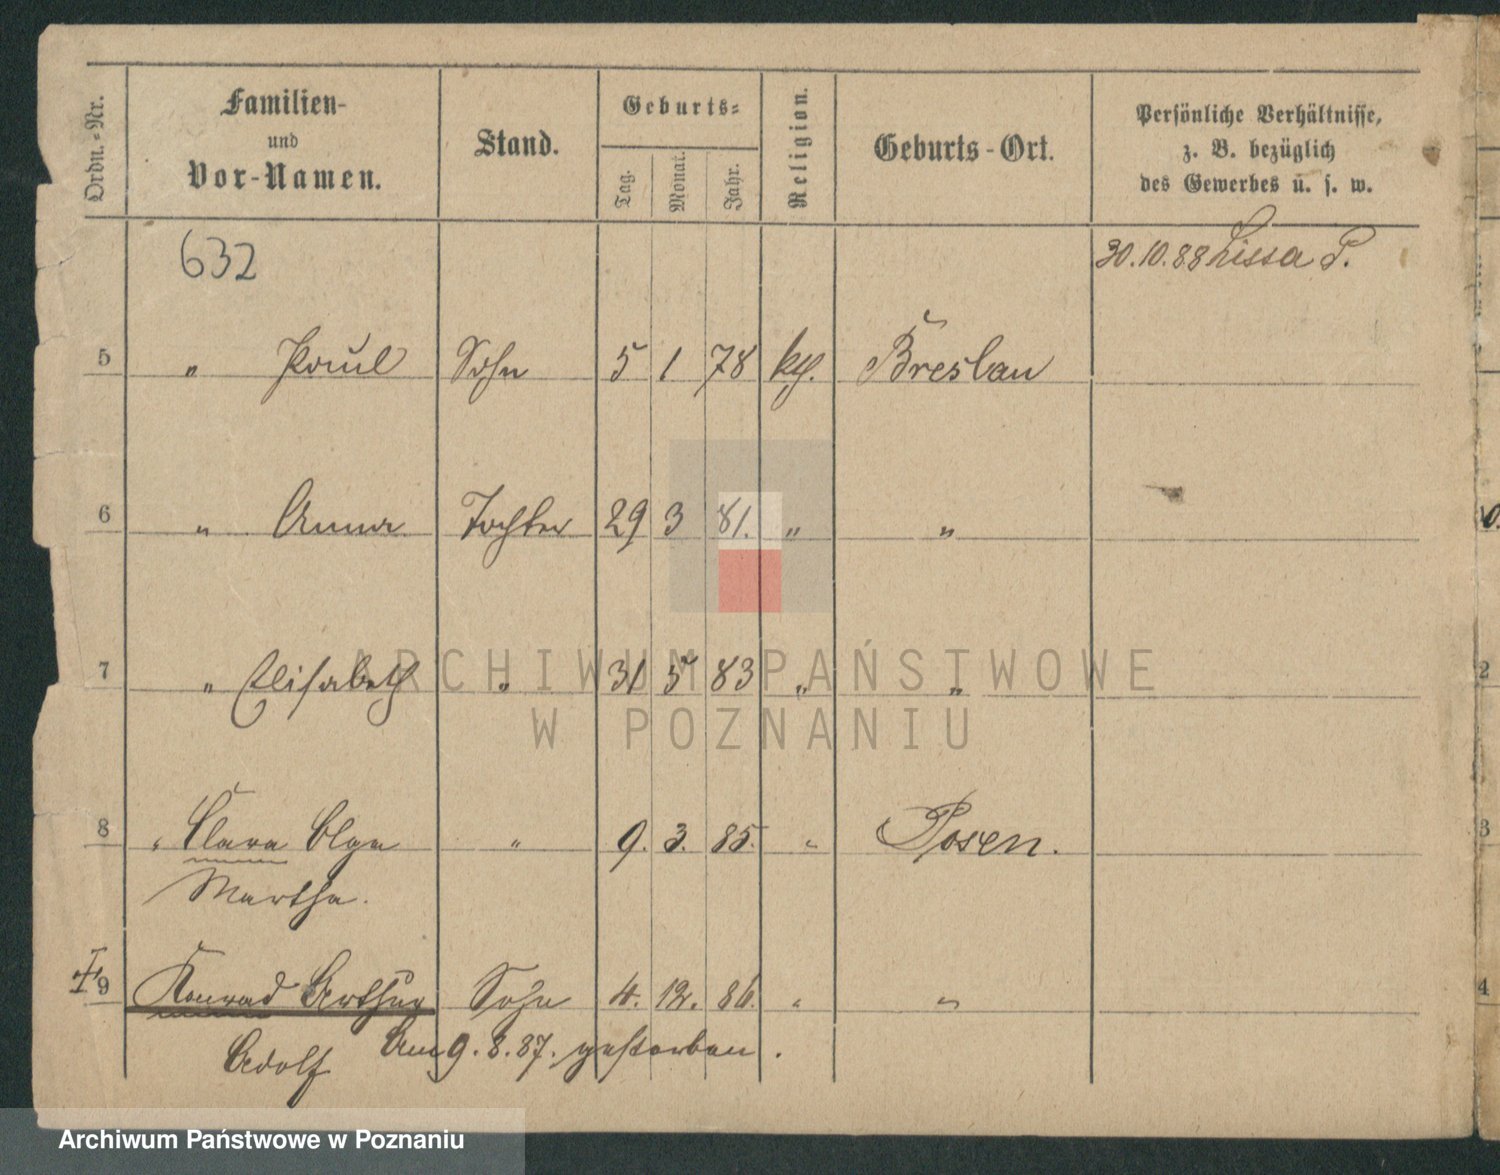 Ordn.-Nr. Familien- und Vor-Namen. Stand. Geburts- Tag. Monat. Jahr. Religion. Geburts-Ort. Persönliche Verhältnisse, z. B. bezüglich des Gewerbes u. s. w.
632 30.10.88 Lissa P.
5 " Paul Sohn 5 1 78 kth. Breslau
6 " Anna Tochter 29 3 81. " "
7 " Elisabeth " 31 5 83 " "
8 " Clara Olga " 9. 3. 85. " Posen.
Martha.
9 Konrad Arthur Sohn 4. 12. 86. " "
Adolf Am 9. 8. 87. gestorben.
ARCHIWUM PAŃSTWOWE
W POZNANIU
Archiwum Państwowe w Poznaniu